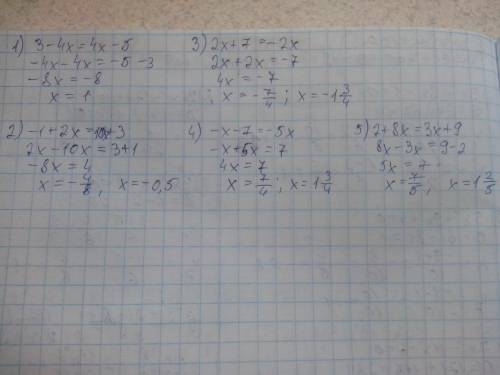 1) 3-4x=4x-5
-4x-4x=-5-3
-8x=-8
x=1
2) -1+2x=10x+3
2x-10x=3+1
-8x=4
x=-4/8; x=-0,5
3) 2x+7=-2x
2x+2x=-7
4x=-7
; x=-7/4; x=-1 3/4
4) -x-7=-5x
-x+5x=7
4x=7
x=7/4; x=1 3/4
5) 2+8x=3x+9
8x-3x=9-2
5x=7
x=7/5, x=1 2/5